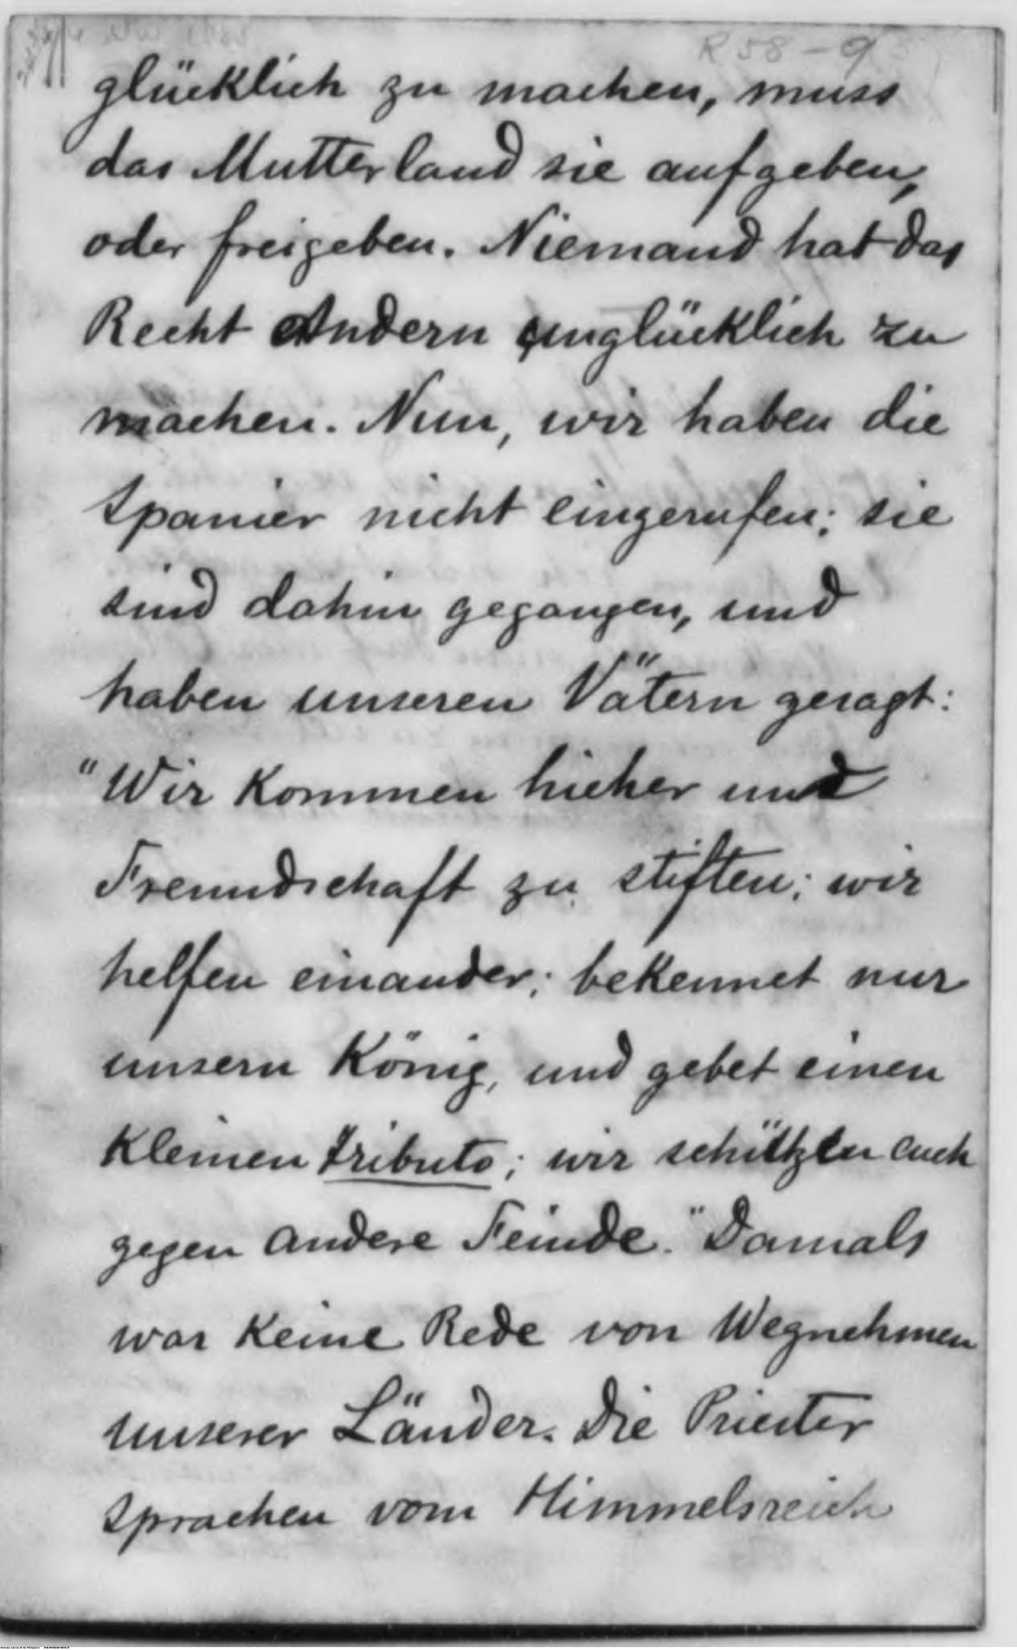 R58-9
glücklich zu machen, muss
das Mutterland sie aufgeben,
oder freigeben. Niemand hat das
Recht Andern unglücklich zu
machen. Nun, wir haben die
Spanier nicht eingerufen; sie
sind dahin gegangen, und
haben unseren Vätern gesagt:
"Wir kommen hieher und
Freundschaft zu stiften; wir
helfen einander; bekennet nur
unsern König, und gebet einen
kleinen tributo; wir schützen euch
gegen andere Feinde." Damals
war keine Rede von Wegnehmen
unserer Länder. Die Priester
sprachen vom Himmelsreich